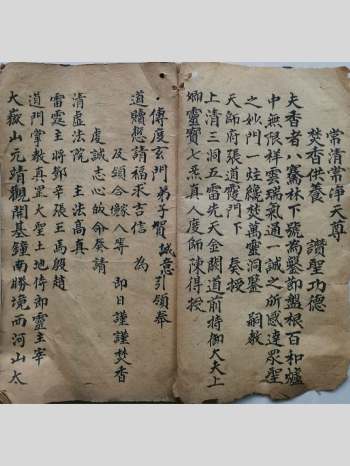 常清常淨天尊
焚香供養　讚聖功德
夫香者八騫林下號為盤節盤根百和爐
中無限祥雲瑞氣通一誠之所感達眾聖
之妙門一炷纔焚萬靈洞鑒　嗣教
天師府張道霞門下　奏授
上清三洞五雷先天金闕道前持御大夫上
靈寶七景真人度師陳得授
傳度玄門弟子賢誠意引領奉
道賸愆請福求吉信　為
及領合緣人等　即日謹謹焚香
虔誠志心皈命奏請
清虛法院　主法高真
雷霆主將鄧辛張王馬殷趙
道門掌教真罡大聖土地侍御靈主宰
大嶽山元靖觀開基鍾南勝境西河山太